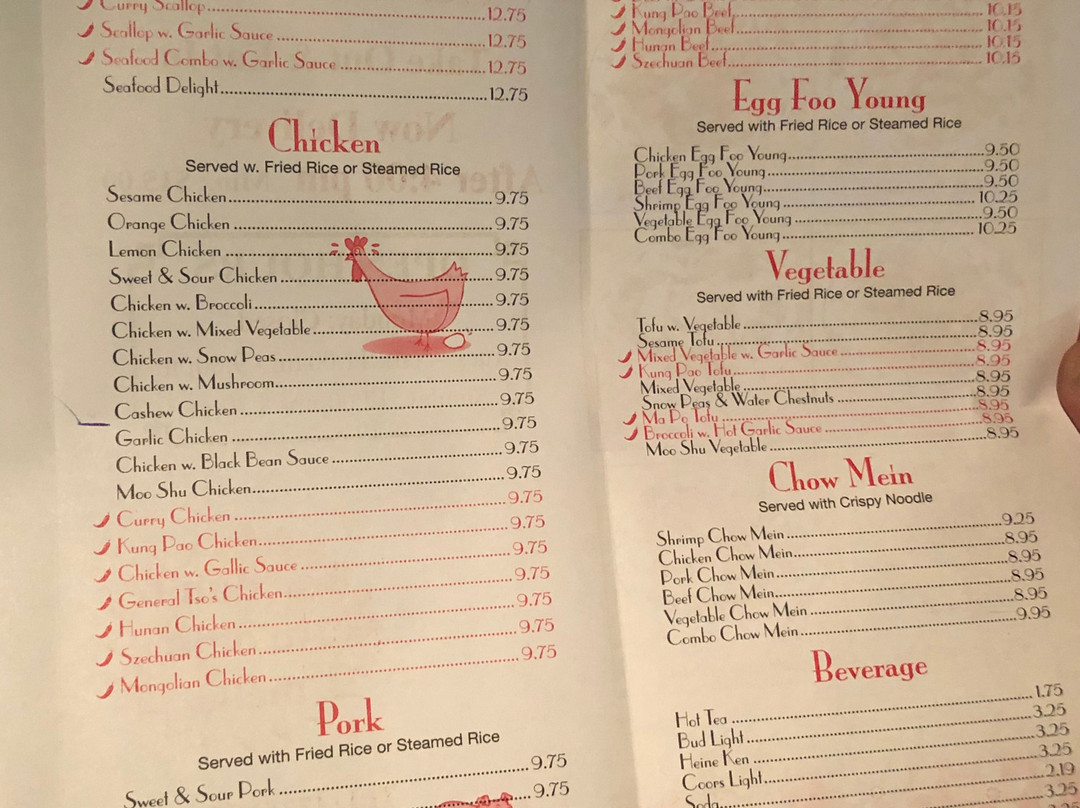 Curry Scallop 12.75
Scallop w. Garlic Sauce 12.75
Seafood Combo w. Garlic Sauce 12.75
Seafood Delight 12.75
Chicken
Served w. Fried Rice or Steamed Rice
Sesame Chicken 9.75
Orange Chicken 9.75
Lemon Chicken 9.75
Sweet & Sour Chicken 9.75
Chicken w. Broccoli 9.75
Chicken w. Mixed Vegetable 9.75
Chicken w. Snow Peas 9.75
Chicken w. Mushroom 9.75
Cashew Chicken 9.75
Garlic Chicken 9.75
Chicken w. Black Bean Sauce 9.75
Moo Shu Chicken 9.75
Curry Chicken 9.75
Kung Pao Chicken 9.75
Chicken w. Gallic Sauce 9.75
General Tso's Chicken 9.75
Hunan Chicken 9.75
Szechuan Chicken 9.75
Mongolian Chicken 9.75
Pork
Served with Fried Rice or Steamed Rice
Sweet & Sour Pork 9.75
9.75
Kung Pao Beef 10.15
Mongolian Beef 10.15
Hunan Beef 10.15
Szechuan Beef 10.15
Egg Foo Young
Served with Fried Rice or Steamed Rice
Chicken Egg Foo Young 9.50
Pork Egg Foo Young 9.50
Beef Egg Foo Young 9.50
Shrimp Egg Foo Young 10.25
Vegetable Egg Foo Young 9.50
Combo Egg Foo Young 10.25
Vegetable
Served with Fried Rice or Steamed Rice
Tofu w. Vegetable 8.95
Sesame Tofu 8.95
Mixed Vegetable w. Garlic Sauce 8.95
Kung Pao Tofu 8.95
Mixed Vegetable 8.95
Snow Peas & Water Chestnuts 8.95
Ma Po Tofu 8.95
Broccoli w. Hot Garlic Sauce 8.95
Moo Shu Vegetable 8.95
Chow Mein
Served with Crispy Noodle
Shrimp Chow Mein 9.25
Chicken Chow Mein 8.95
Pork Chow Mein 8.95
Beef Chow Mein 8.95
Vegetable Chow Mein 8.95
Combo Chow Mein 9.95
Beverage
Hot Tea 1.75
Bud Light 3.25
Heine Ken 3.25
Coors Light 3.25
Soda 2.19
3.25